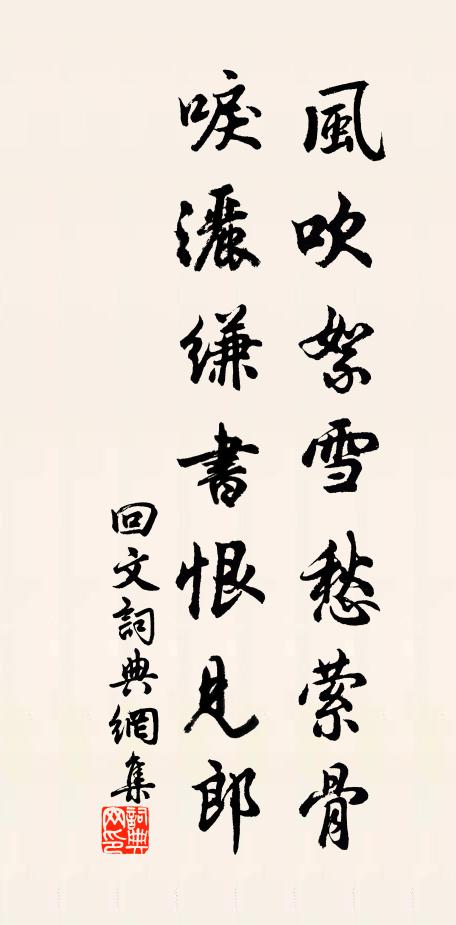 風吹絮雪愁萦骨
唳灑縑書恨見郎
回文詞典網集
詞典网印